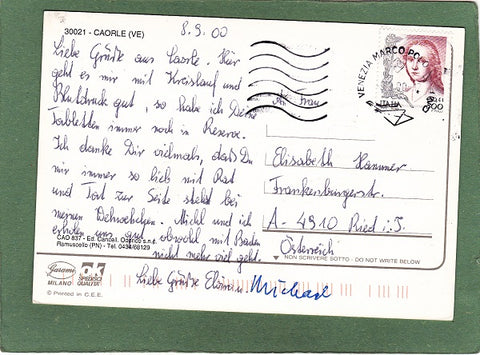 30021 - CAORLE (VE)
8.9.00
Liebe Grüße aus Caorle. Hier
geht es mir mit Kreislauf und
Blutdruck gut, so habe ich Deine
Tabletten immer noch in Reserve.
Ich danke Dir vielmals, daß Du
mir immer so lieb mit Rat
und Tat zur Seite stehst bei
meinen Wehwehchen. Michl und ich
erholen uns gut obwohl mit Baden
nicht mehr viel geht.
Liebe Grüße u. Michael
CAO 837 - Ed. Cancall. Odorico s.n.c.
Ramuscello (PN) - Tel. 0434/68129
VENEZIA MARCO PO
ITALIA
800
An Frau
Elisabeth Hammer
Frankenburgerstr.
A - 4910 Ried i. J.
Österreich
NON SCRIVERE SOTTO - DO NOT WRITE BELOW
Garami
MILANO
OK
SPEDISCI
QUALITÀ
© Printed in C.E.E.